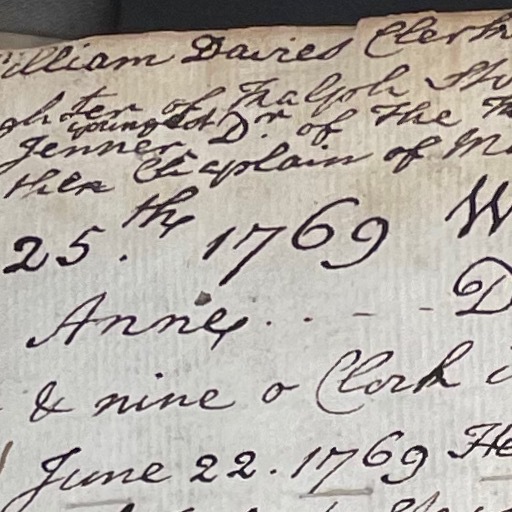 William Davies Clerk
ghter of Ralph
youngest Dr. of The
Jenner
then Chaplain of
25.th 1769 W
Anne . . - - - D
& nine o Clock
June 22. 1769 He